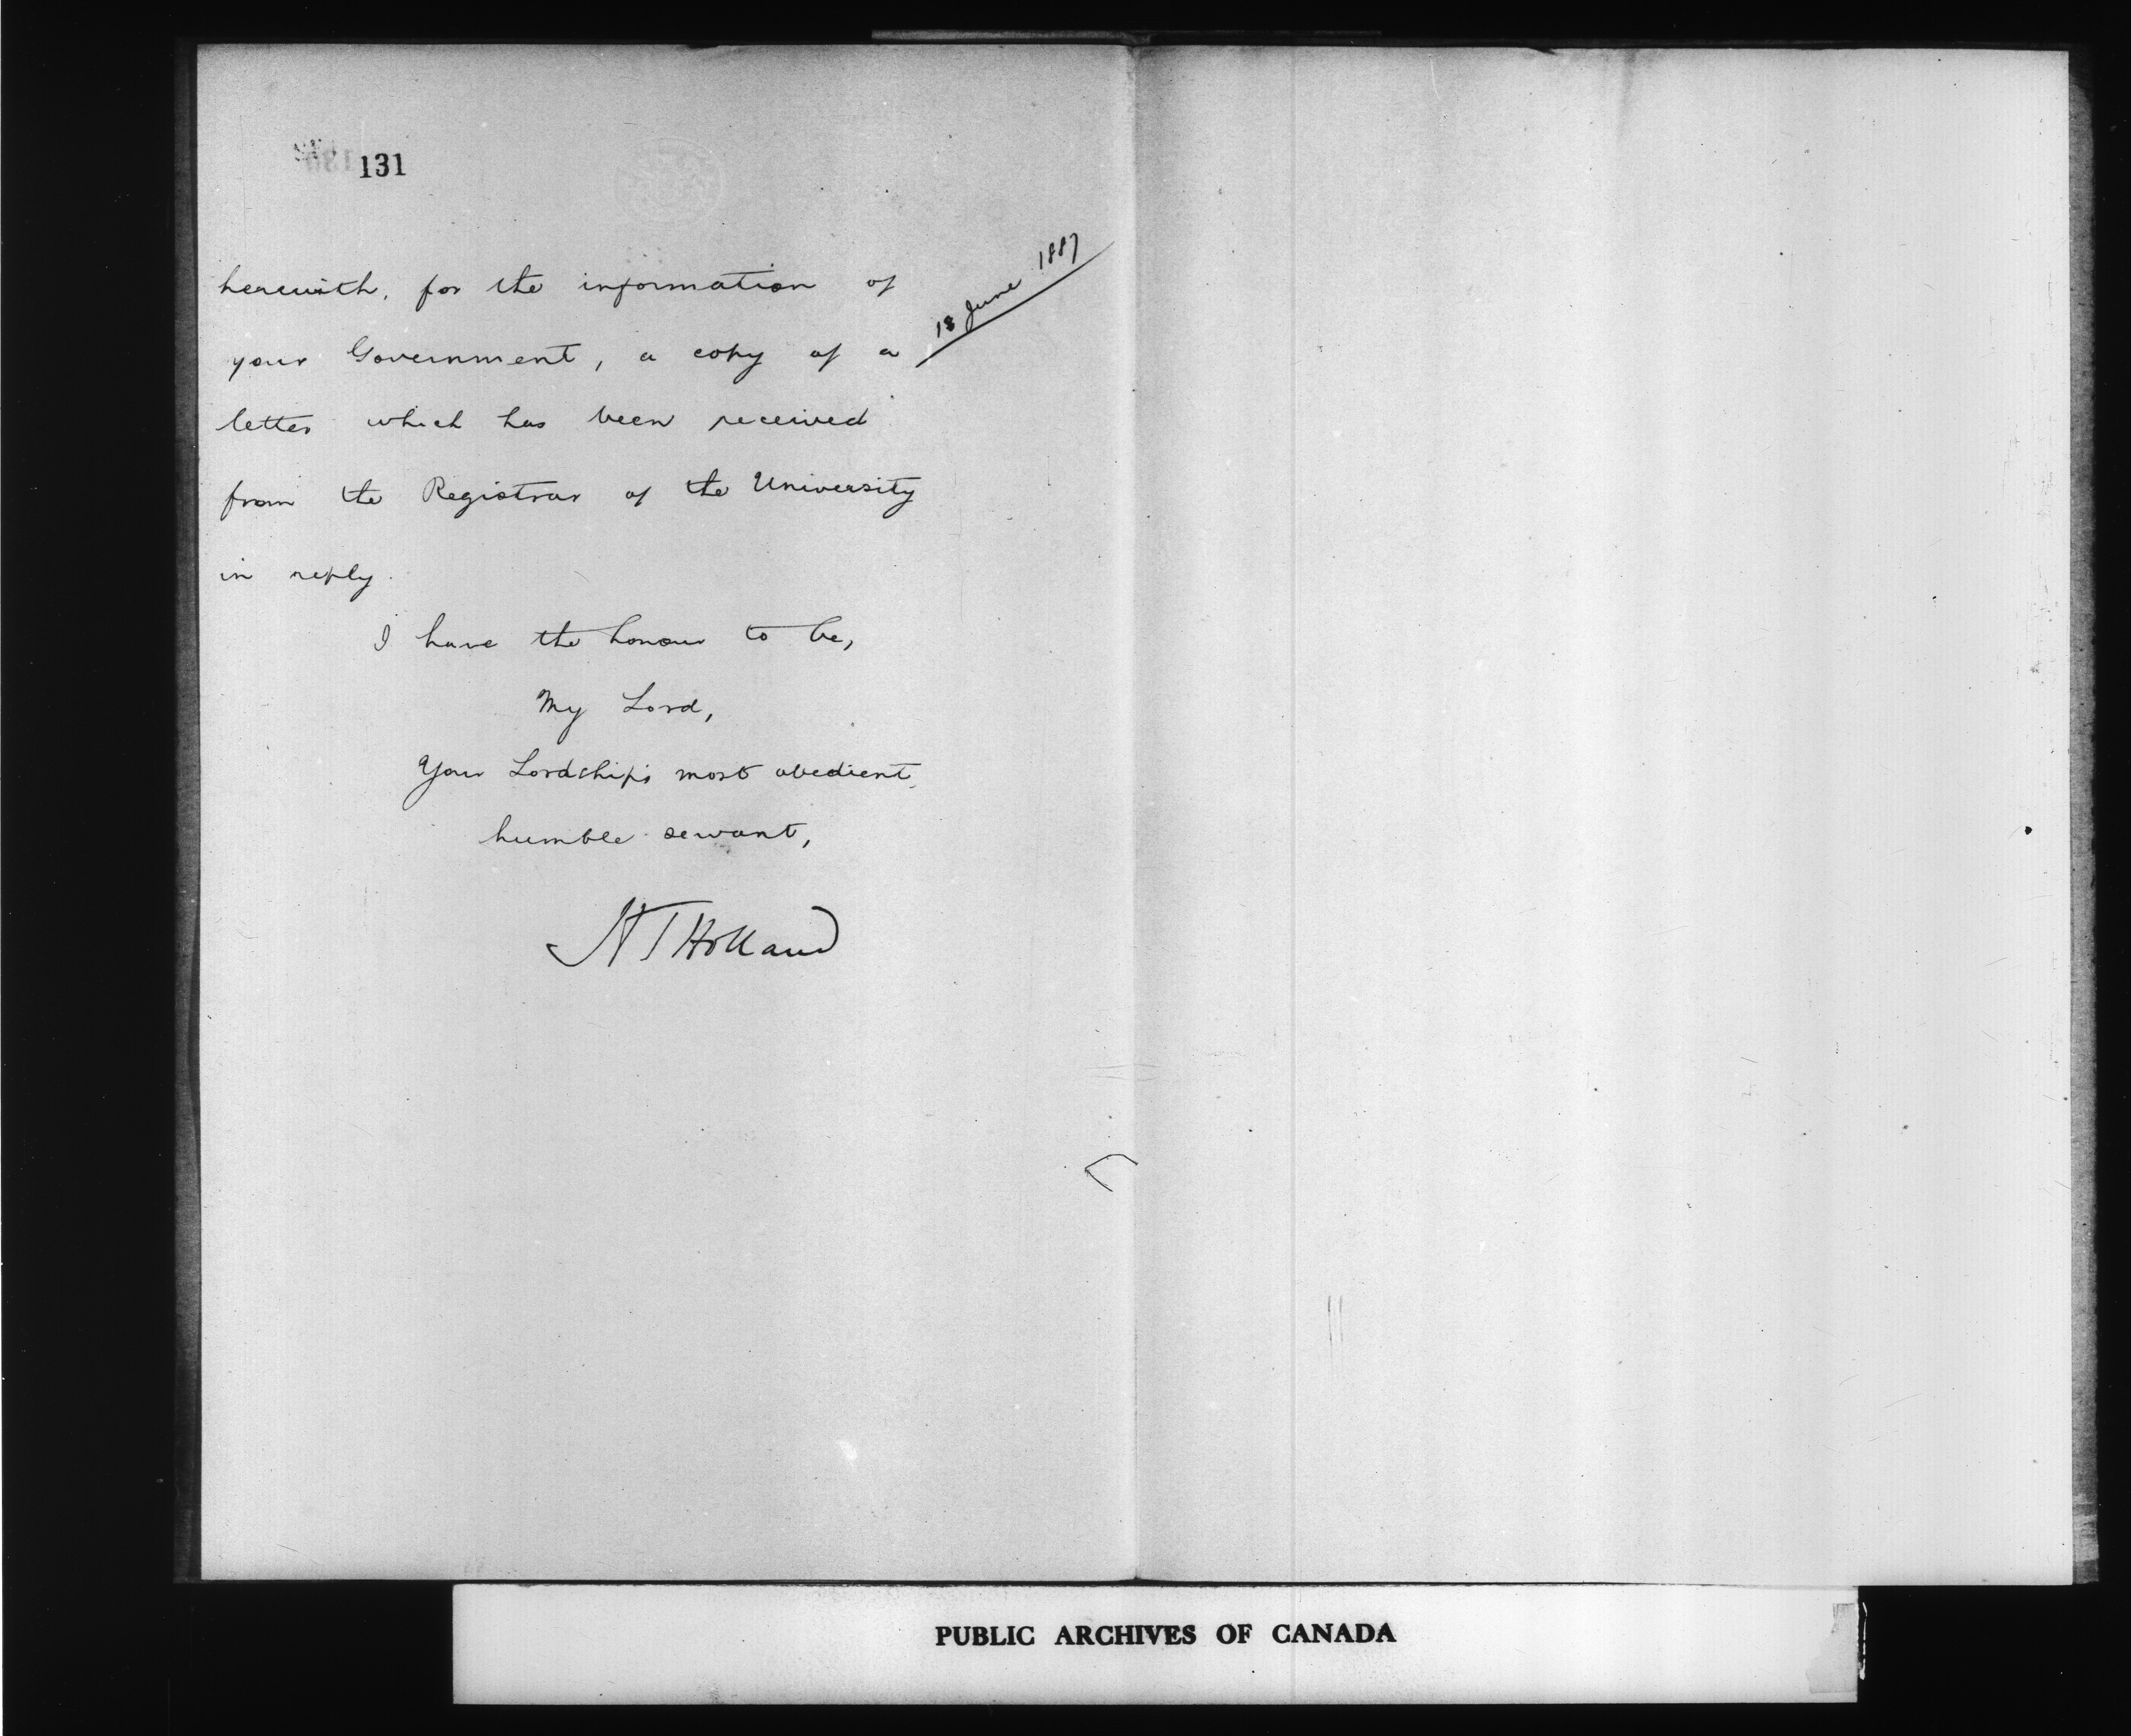 131
18 June 1887
herewith, for the information of
your Government, a copy of a
letter which has been received
from the Registrar of the University
in reply.
I have the honour to be,
My Lord,
Your Lordship's most obedient,
humble servant,
HTHolland
PUBLIC ARCHIVES OF CANADA